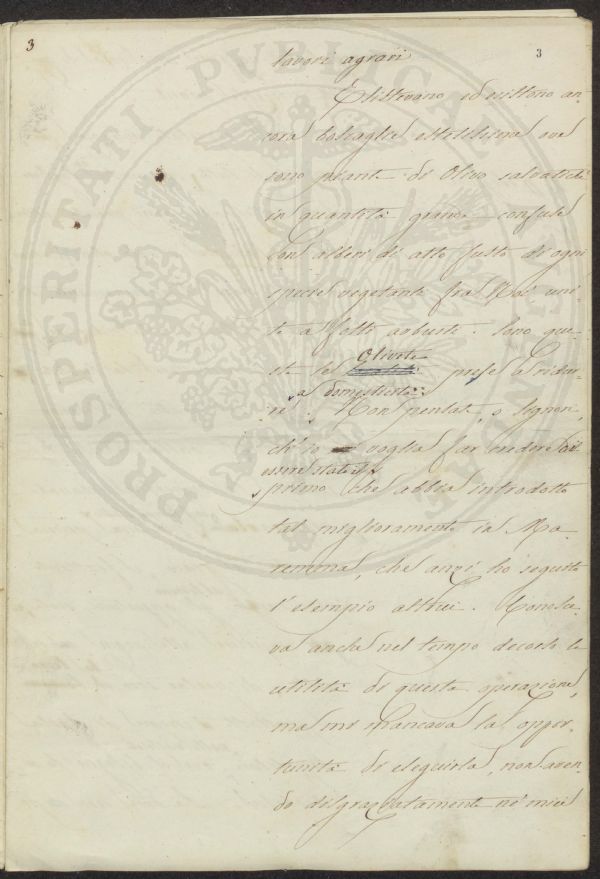 3
3
lavori agrari
Esistevano ed esistono an-
cora boscaglie estesissime ove
sono piante di Olivo salvatiche
in quantità grande confuse
con alberi di alto fusto di ogni
specie vegetante fra Noi, uni-
te a folti arbusti. Sono que-
ste le Olivete prese a ridur-
re a domestiche. Non pensate, o Signori,
ch'io voglia far credere di
essere stato il
primo che abbia introdotto
tal miglioramento in Ma-
remma, che anzi ho seguito
l'esempio altrui. Conosce-
va anche nel tempo decorso la
utilità di questa operazione,
ma mi mancava la oppor-
tunità di eseguirla, non aven-
do disgraziatamente ne' miei
PROSPERITATI PVBLICAE